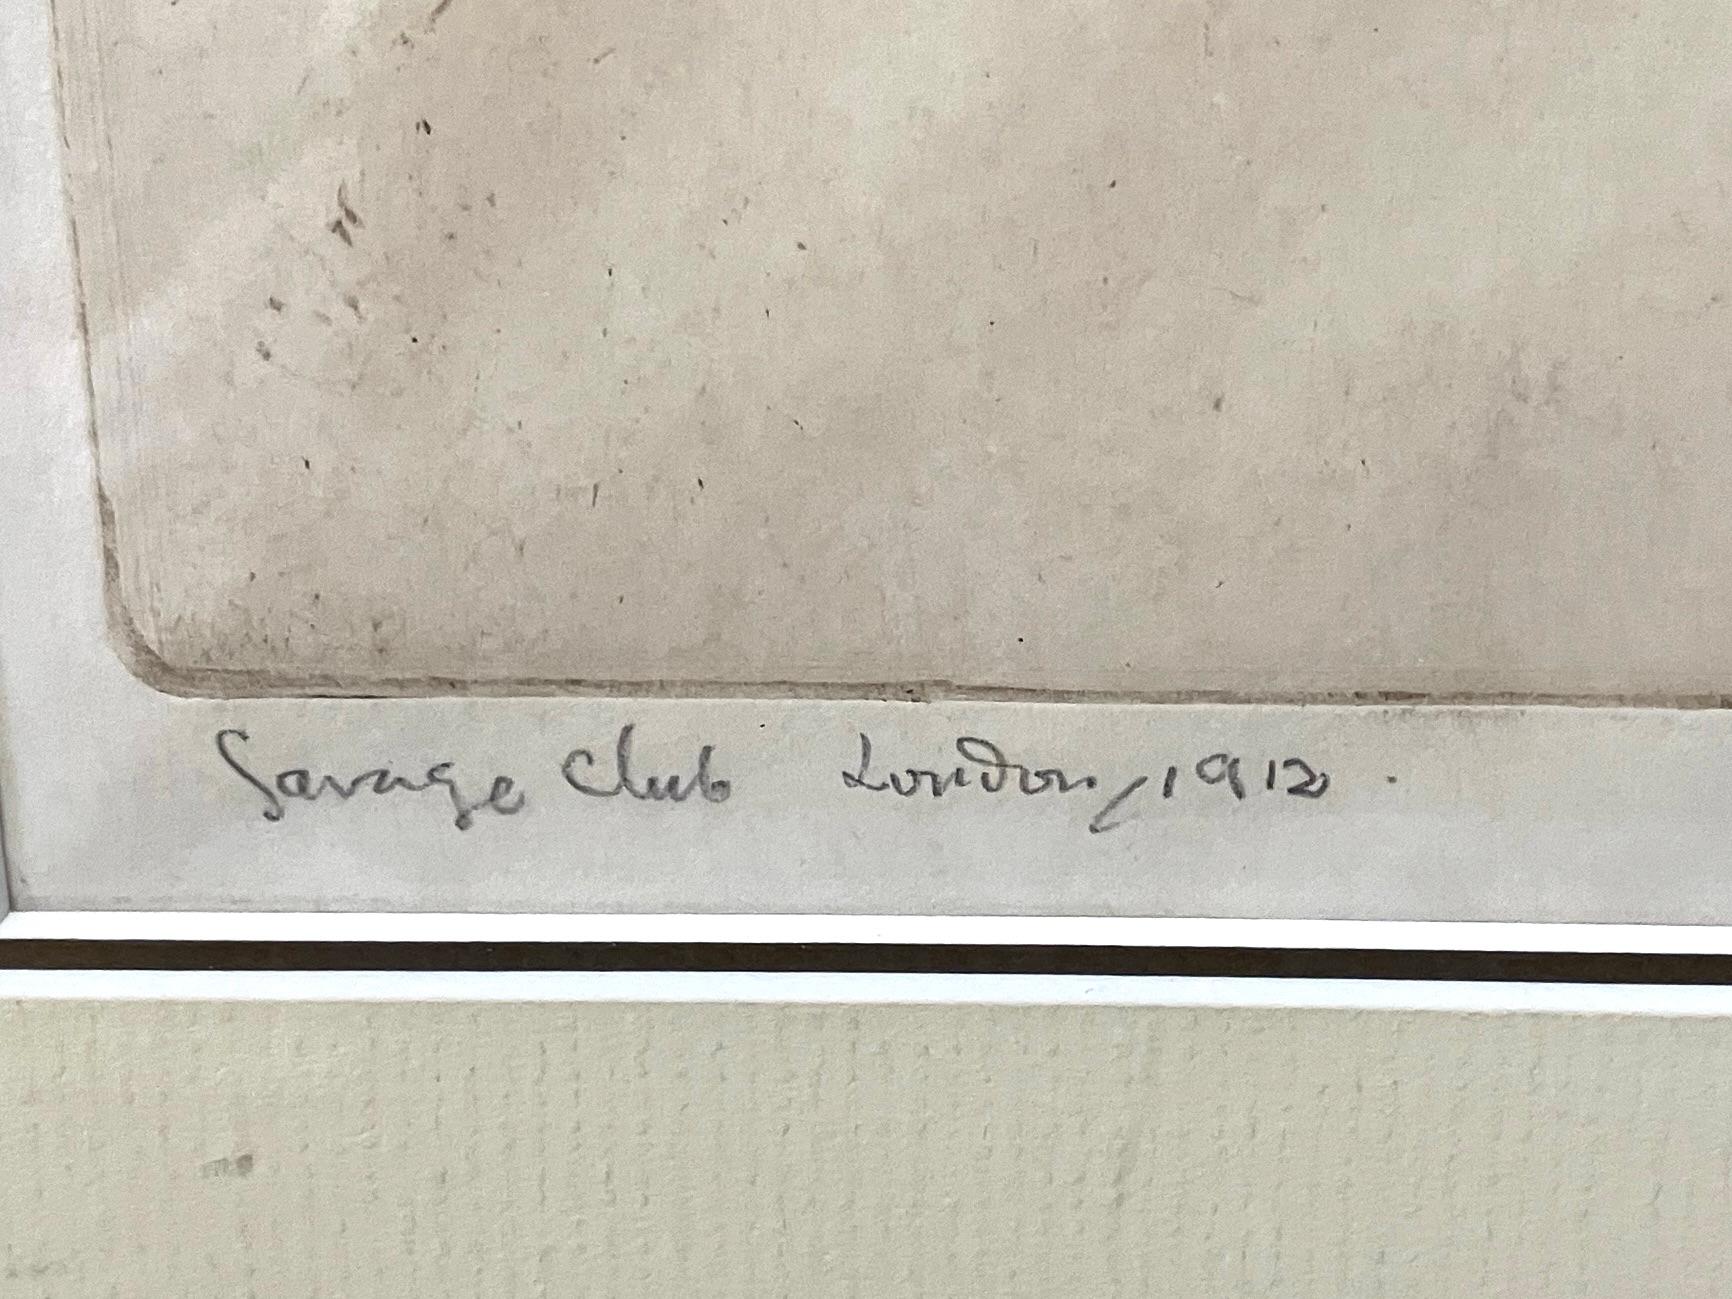 Savage Club London, 1912.